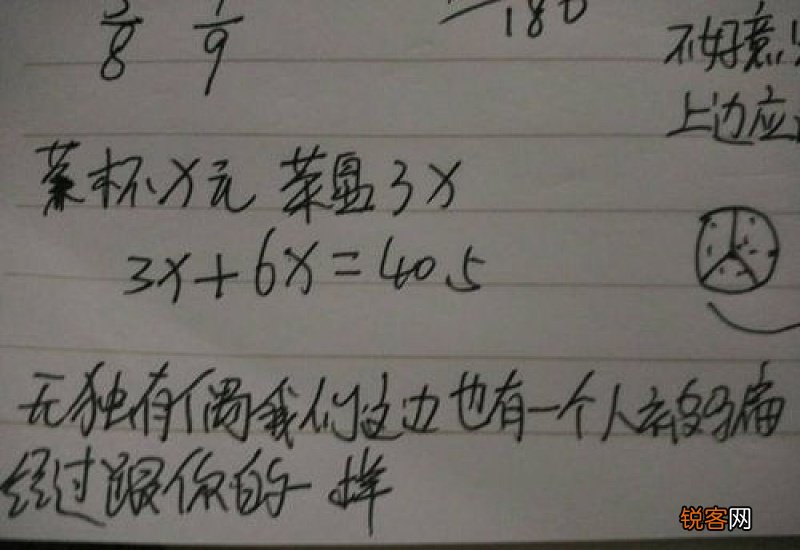 8 9
180
不好意
上边应
茶杯x元 茶盘3x
3x+6x=40.5
无独有偶我们这边也有一个人被骗
经过跟你的一样
锐客网